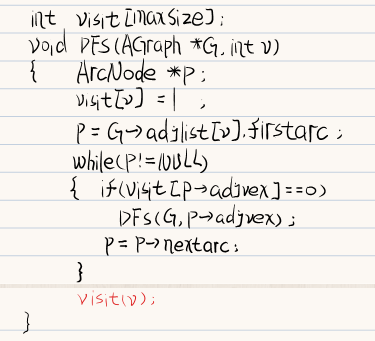 int visit[maxSize];
void DFS(AGraph *G, int v)
{ ArcNode *p;
visit[v] = 1 ,
p = G->adjlist[v].firstarc ;
while(p!=NULL)
{ if(visit[p->adjvex]==0)
DFS(G,p->adjvex);
p = p->nextarc;
}
visit(v);
}